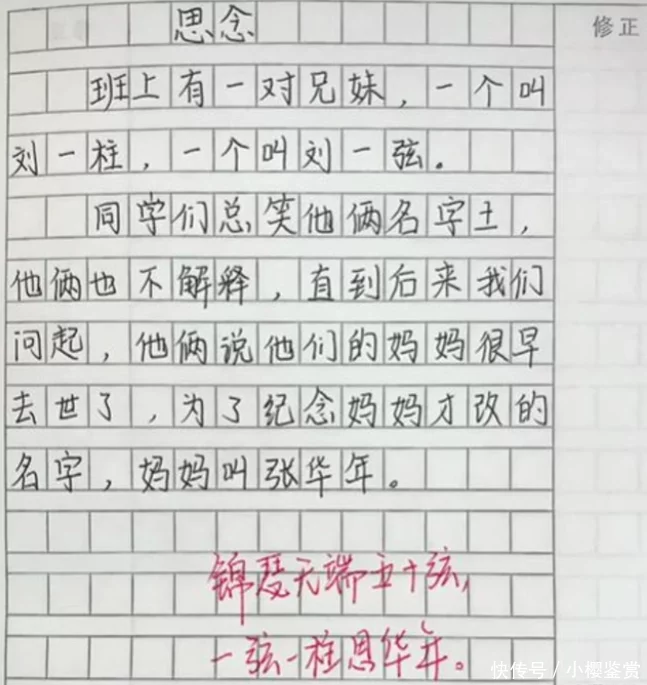 思念
修正
班上有一对兄妹，一个叫
刘一柱，一个叫刘一弦。
同学们总笑他俩名字土，
他俩也不解释，直到后来我们
问起，他俩说他们的妈妈很早
去世了，为了纪念妈妈才改的
名字，妈妈叫张华年。
锦瑟无端五十弦，
一弦一柱思华年。
快传号/小樱鉴赏